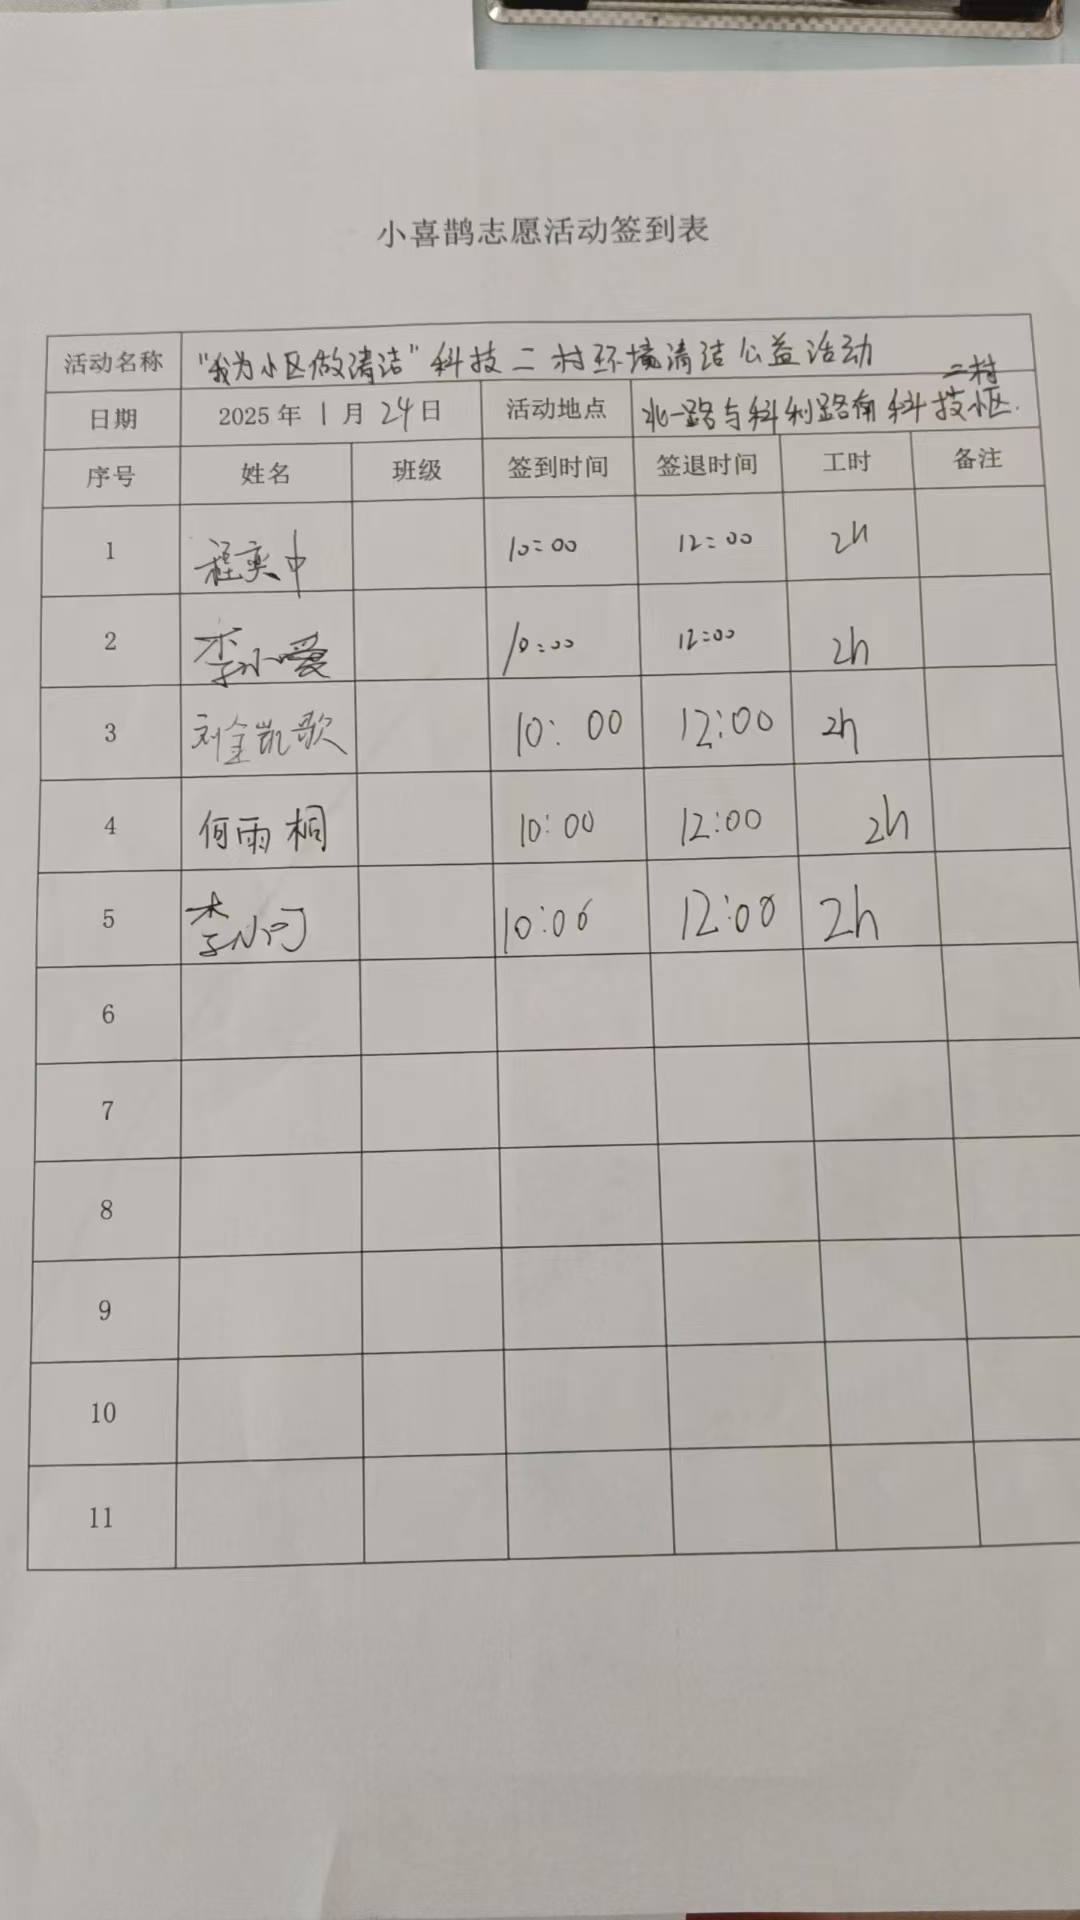 小喜鹊志愿活动签到表
活动名称 “我为小区做清洁”科技二村环境清洁公益活动
日期 2025年1月24日 活动地点 北一路与科利路南科技二村小区.
序号 姓名 班级 签到时间 签退时间 工时 备注
1 程奕中 10:00 12:00 2h
2 李小爱 10:00 12:00 2h
3 刘金凯歌 10:00 12:00 2h
4 何雨桐 10:00 12:00 2h
5 李小可 10:00 12:00 2h
6
7
8
9
10
11